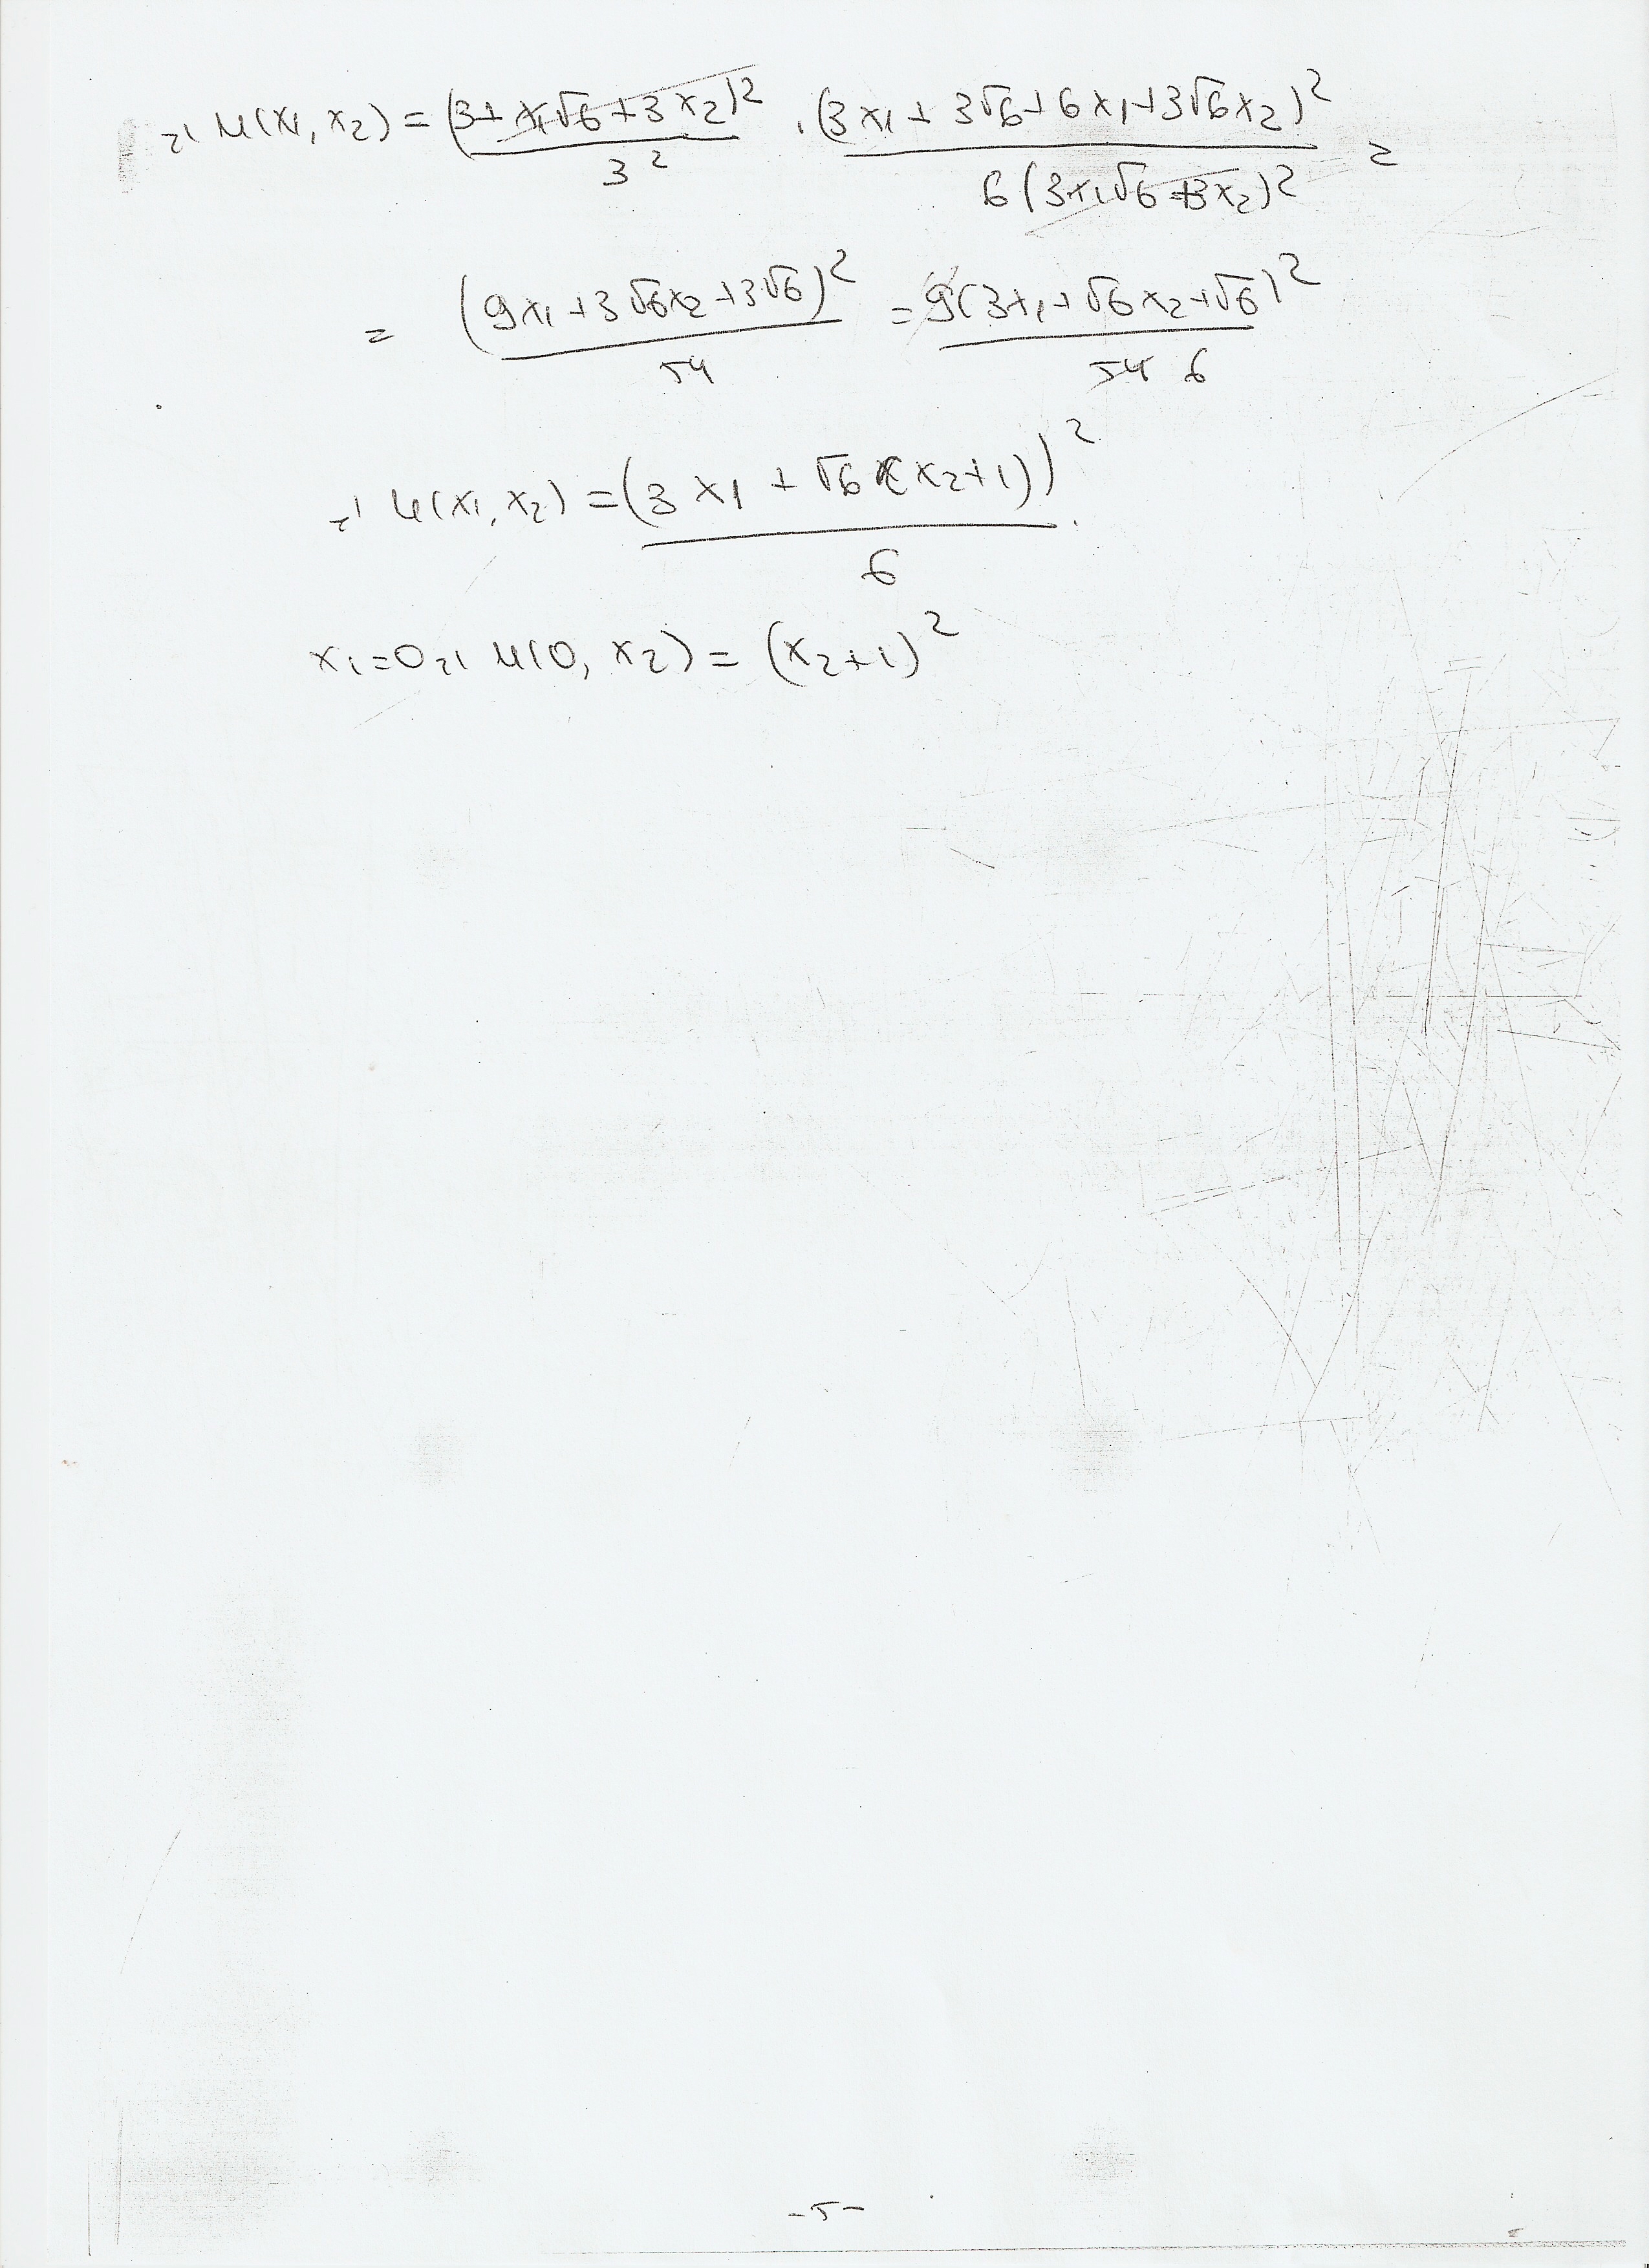 => u(x₁, x₂) = (3+x₁√6+3x₂)²/3² · (3x₁+3√6+6x₁+3√6x₂)²/6(3+x₁√6+3x₂)² =
= (9x₁+3√6x₂+3√6)²/54 = 9(3x₁+√6x₂+√6)²/54 6
=> u(x₁, x₂) = (3x₁ + √6(x₂+1))²/6.
x₁=0 => u(0, x₂) = (x₂+1)²
-5-